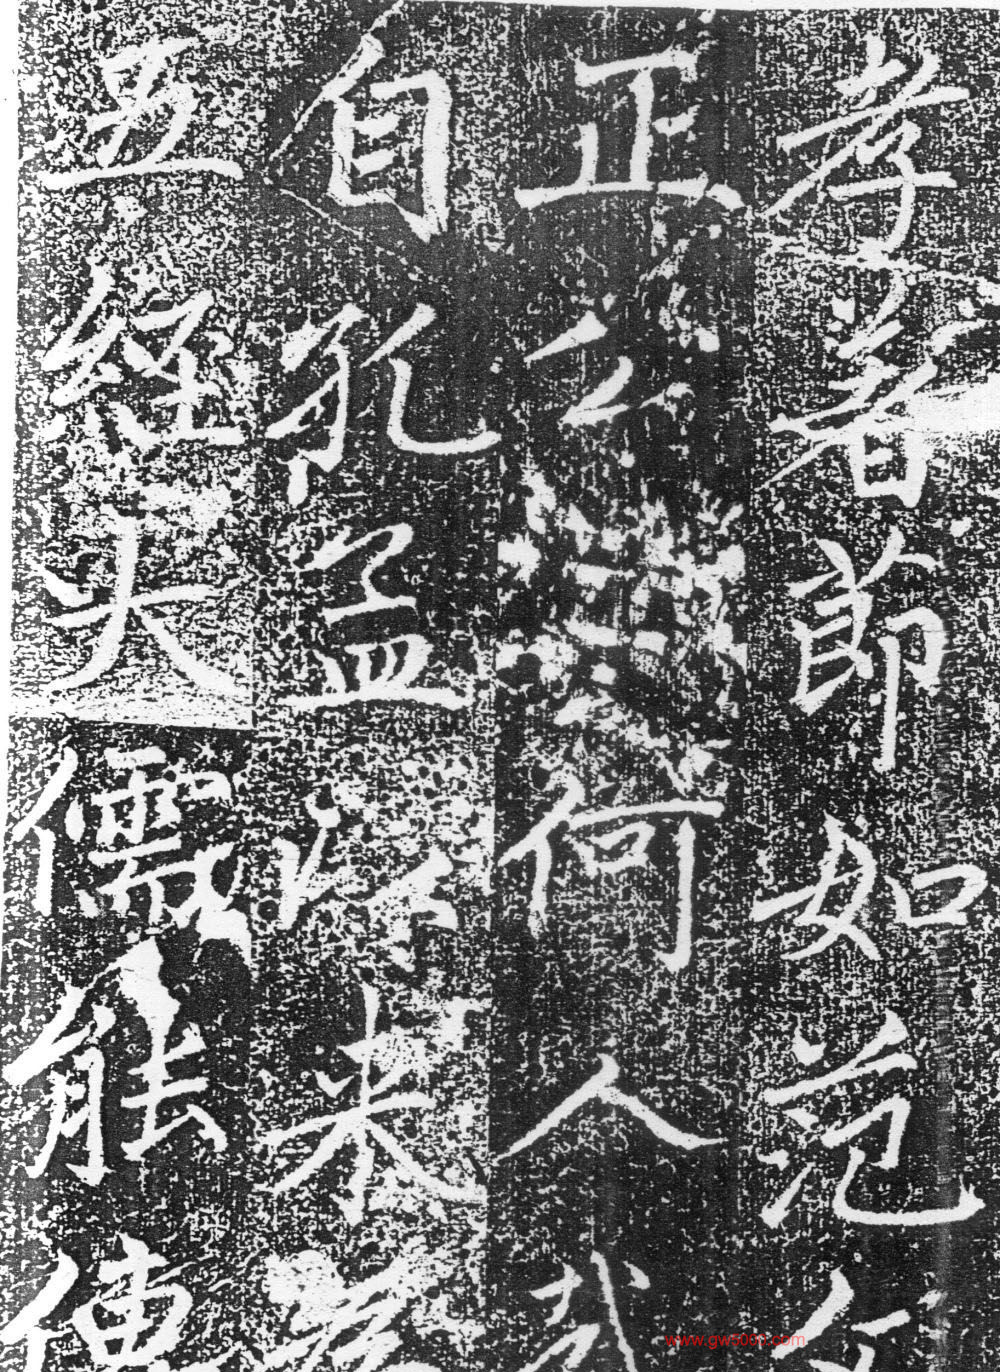 孝者節如范
正公何人哉
自孔孟以來
五経大儒能傳
www.gw5000.com